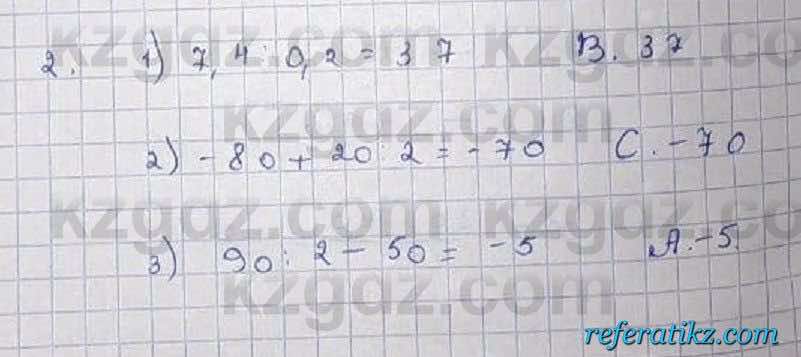 2. 1) 7,4 : 0,2 = 37 B. 37
2) - 80 + 20 : 2 = - 70 C. - 70
3) 90 : 2 - 50 = - 5 A. - 5
kzgdz.com kzgdz.com
kzgdz.com
kzgdz.com kzgdz.com
kzgdz.com
referatikz.com